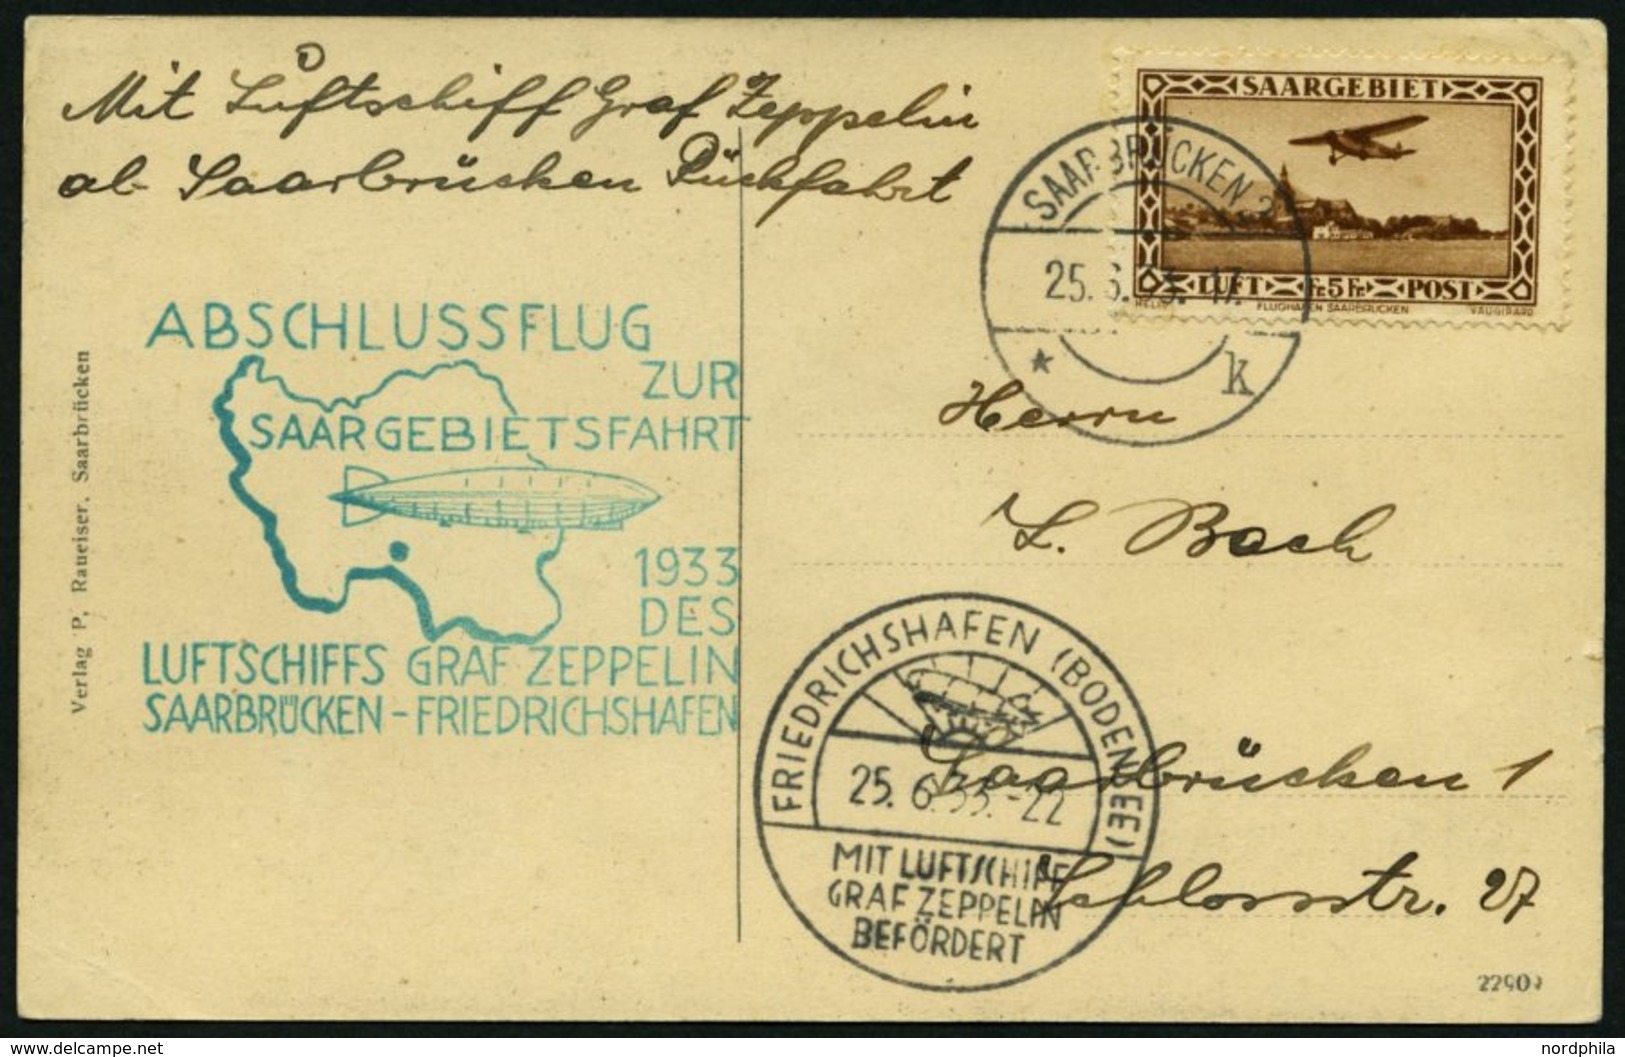 Mit Luftschiff Graf Zeppelin
ab Saarbrücken Rückfahrt
SAARGEBIET
LUFT Fr. 5 Fr. POST
HELIO
FLUGHAFEN SAARBRÜCKEN
VAUGIRARD
SAARBRÜCKEN 2
25. 6. 33. 17.
* k
ABSCHLUSSFLUG
ZUR
SAARGEBIETSFAHRT
1933
DES
LUFTSCHIFFS GRAF ZEPPELIN
SAARBRÜCKEN - FRIEDRICHSHAFEN
Verlag P. Raueiser, Saarbrücken
Herrn
L. Bach
Saarbrücken 1
Schlossstr. 27
FRIEDRICHSHAFEN (BODENSEE)
25. 6. 33. -22
MIT LUFTSCHIFF
GRAF ZEPPELIN
BEFÖRDERT
www.delcampe.net
nordphila